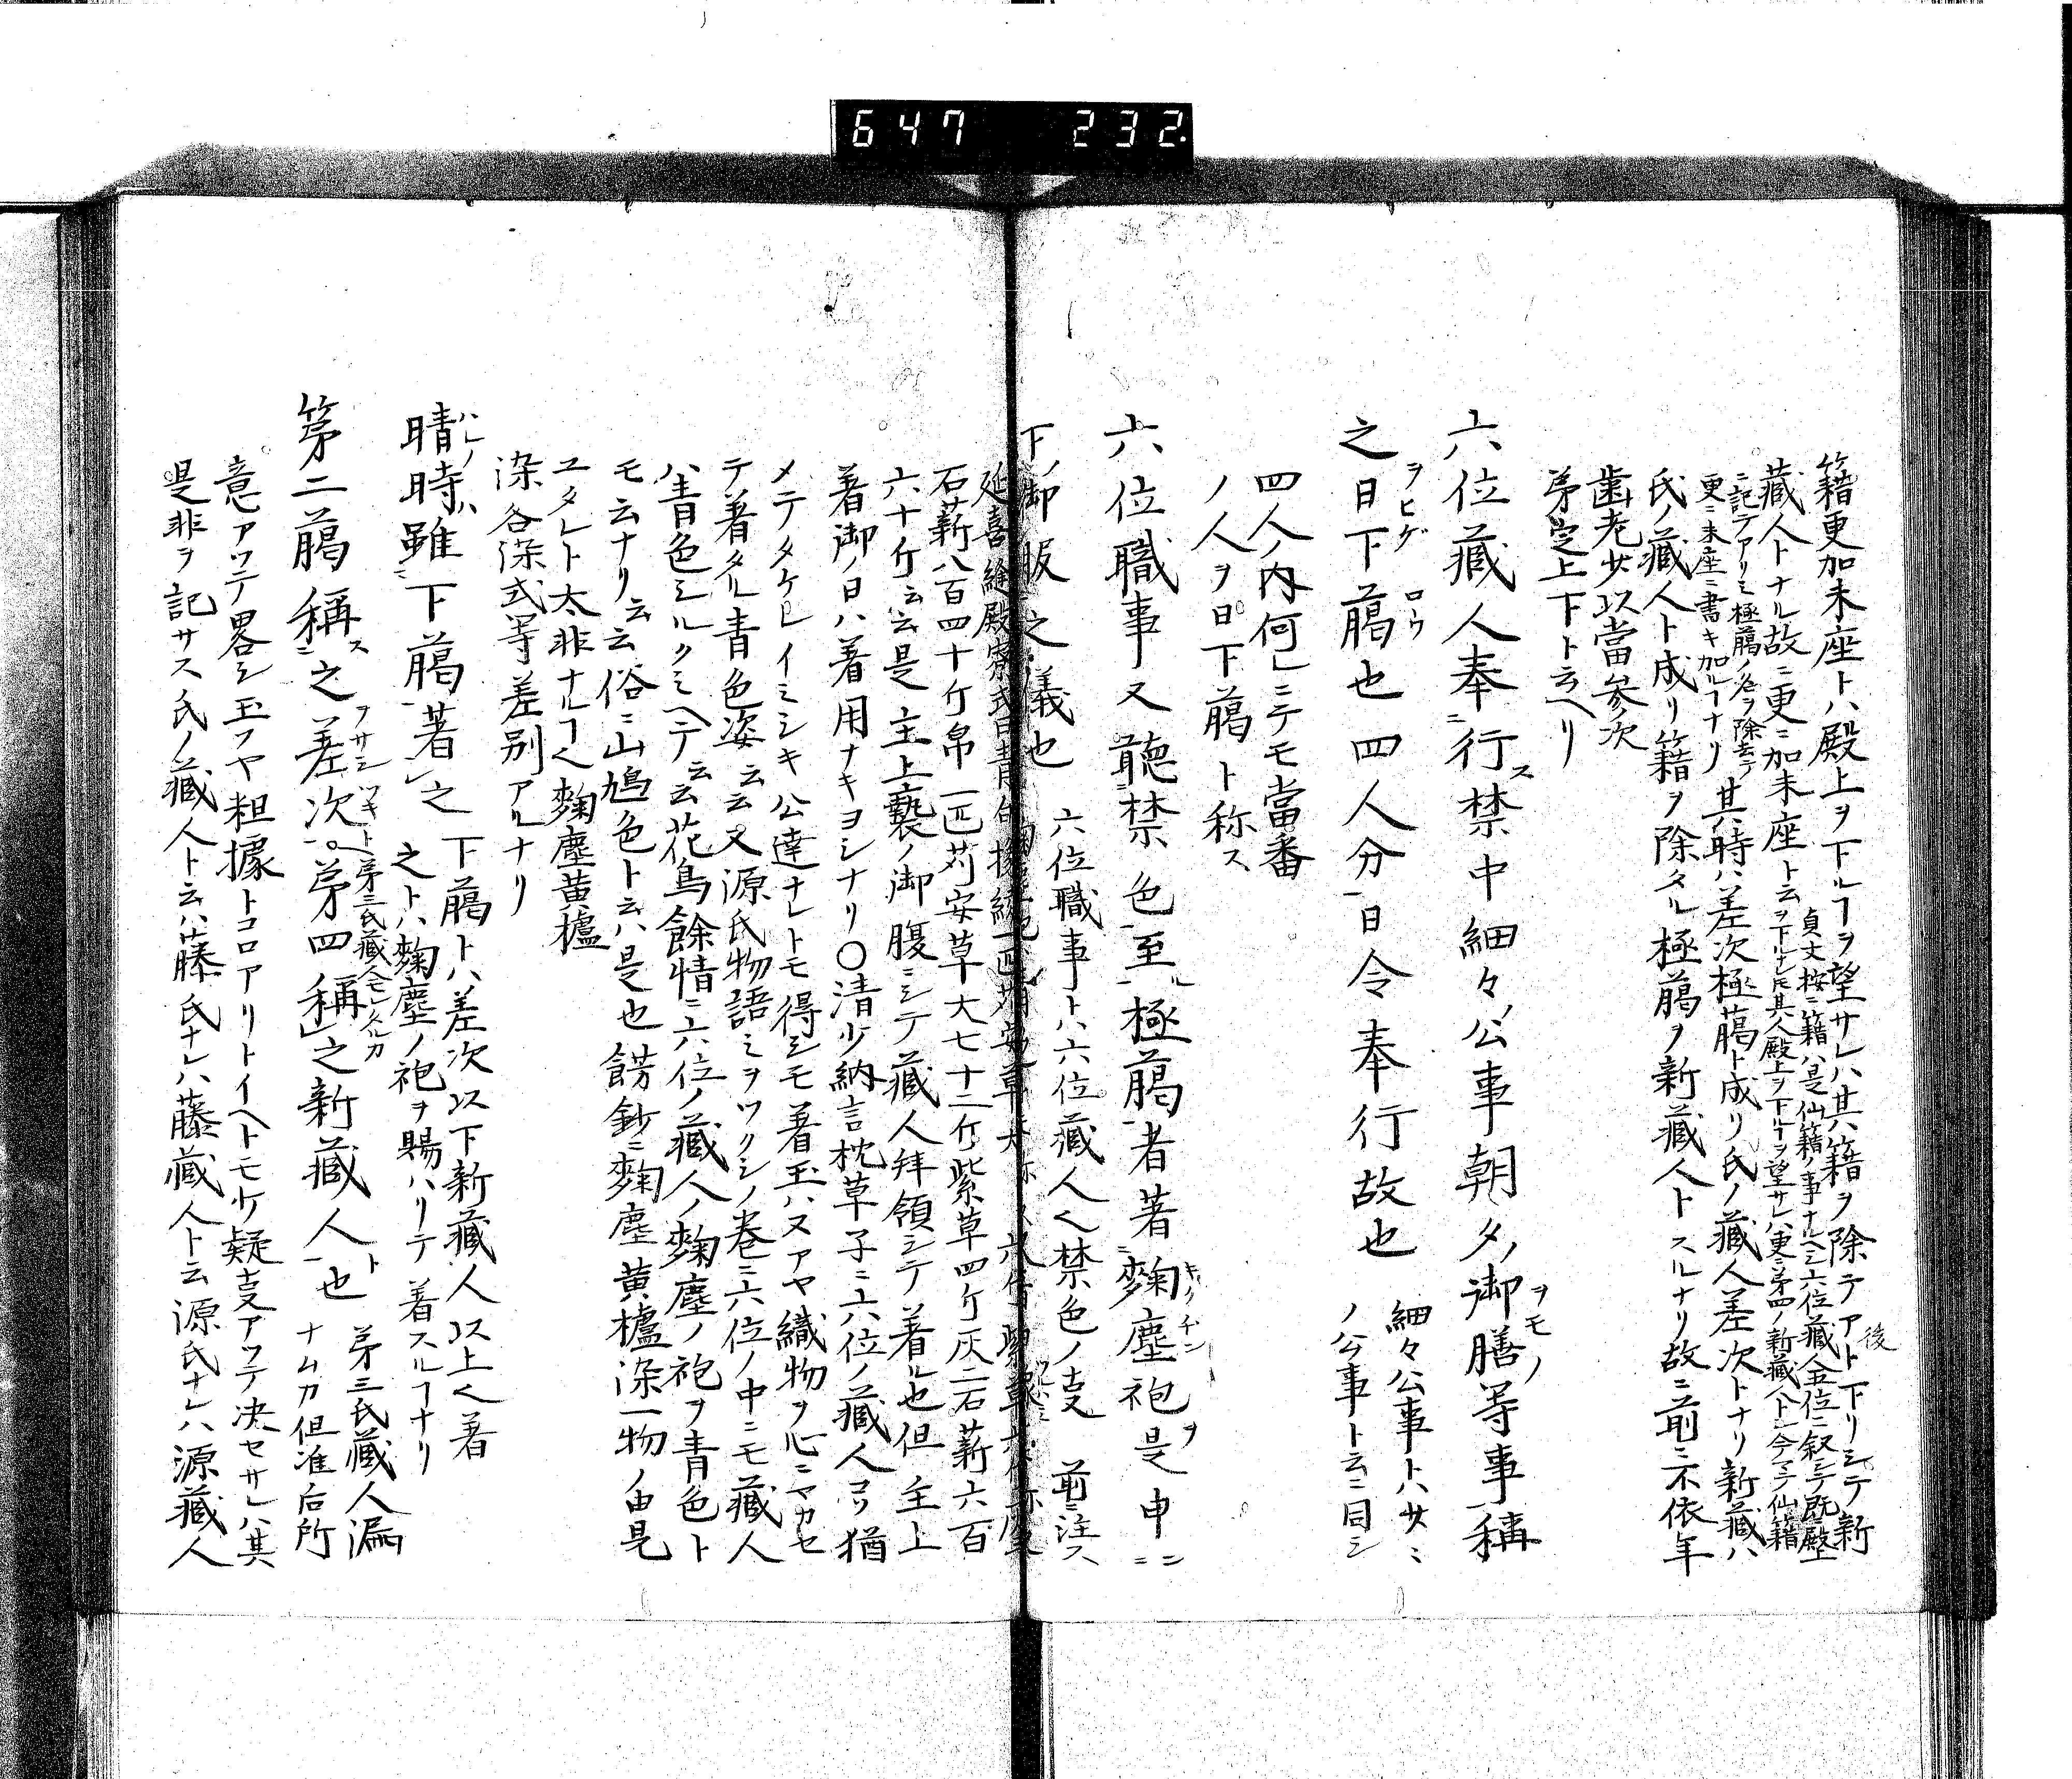 647 232.
籍更加末座トハ殿上ヲ下ルヿヲ望サレハ其籍ヲ除テアト後下リシテ新
藏人トナル故ニ更ニ加末座ト云
貞丈按ニ籍ハ是仙籍ノ事ナルヘシ六位藏人五位ニ叙シテ既ニ殿上
ヲ下ルナレ𪜈其人殿上ヲ下ルヿヲ望サレハ更ニ第四ノ新藏人トシ今マテ仙籍
ニ記テアリシ極﨟ノ名ヲ除去テ
更ニ末座ニ書キ加ルヿナリ
其時ハ差次極﨟ト成リ氏ノ藏人差次トナリ新藏ハ
氏ノ藏人ト成リ籍ヲ除タル極﨟ヲ新藏人トスルナリ故ニ前ニ不依年
齒老少以當参ノ次
第定上下ト云ヘリ
六位藏人奉ニ行ス禁中細々ノ公事朝夕ノ御膳ヲモノ等事稱
之日下﨟ヲヒゲロウ也四人分一日令奉行故也
細々公事トハ少々ニ
ノ公事ト云ニ同シ
四人ノ内何レニテモ當番
ノ人ヲ日下﨟ト称ス
六位職事又聽禁色至極﨟者著麴塵キクヂン袍ヲ是申ニ
下ノ御服之義也
六位職事トハ六位藏人也禁色ノ㕝前ニ注ス
延喜縫殿寮式曰青白橡綾一疋苅安草大
石薪八百四十斤帛一匹苅安草大七十二斤紫草四斤灰二石薪六百
六十斤云云是主上褻ノ御服ニシテ藏人拜領シテ着ル也但主上
着御ノ日ハ着用ナキヨシナリ〇清少納言枕草子ニ六位ノ藏人コソ猶
メテタケレイミシキ公達ナレトモ得シモ着玉ハヌアヤ織物ヲ心ニマカセ
テ着タル青色姿云云又源氏物語ミヲツクシノ巻ニ六位ノ中ニモ藏人
ハ青色シルクミヘテ云云花鳥餘情ニ六位ノ藏人ノ麴塵ノ袍ヲ青色ト
モ云ナリ云云俗ニ山鳩色ト云ハ是也餝鈔ニ麴塵黄櫨染一物ノ由見
ユタレト太非ナルヿ也麴塵黄櫨
染各染式等差別アルナリ
晴ハレノ時ハ雖下﨟著之
下﨟トハ差次以下新藏人以上也着
之トハ麴塵ノ袍ヲ賜ハリテ着スルヿナリ
第二﨟稱ス之差次ヲサシツギト
第三氏藏人モレタルカ
第四稱之新藏人ト也
第三氏藏人漏
ナムカ但准后所
意アツテ畧シ玉フヤ粗據トコロアリトイヘトモ少疑㕝アツテ決セサレハ其
是非ヲ記サス氏ノ藏人ト云ハ藤氏ナレハ藤藏人ト云源氏ナレハ源藏人